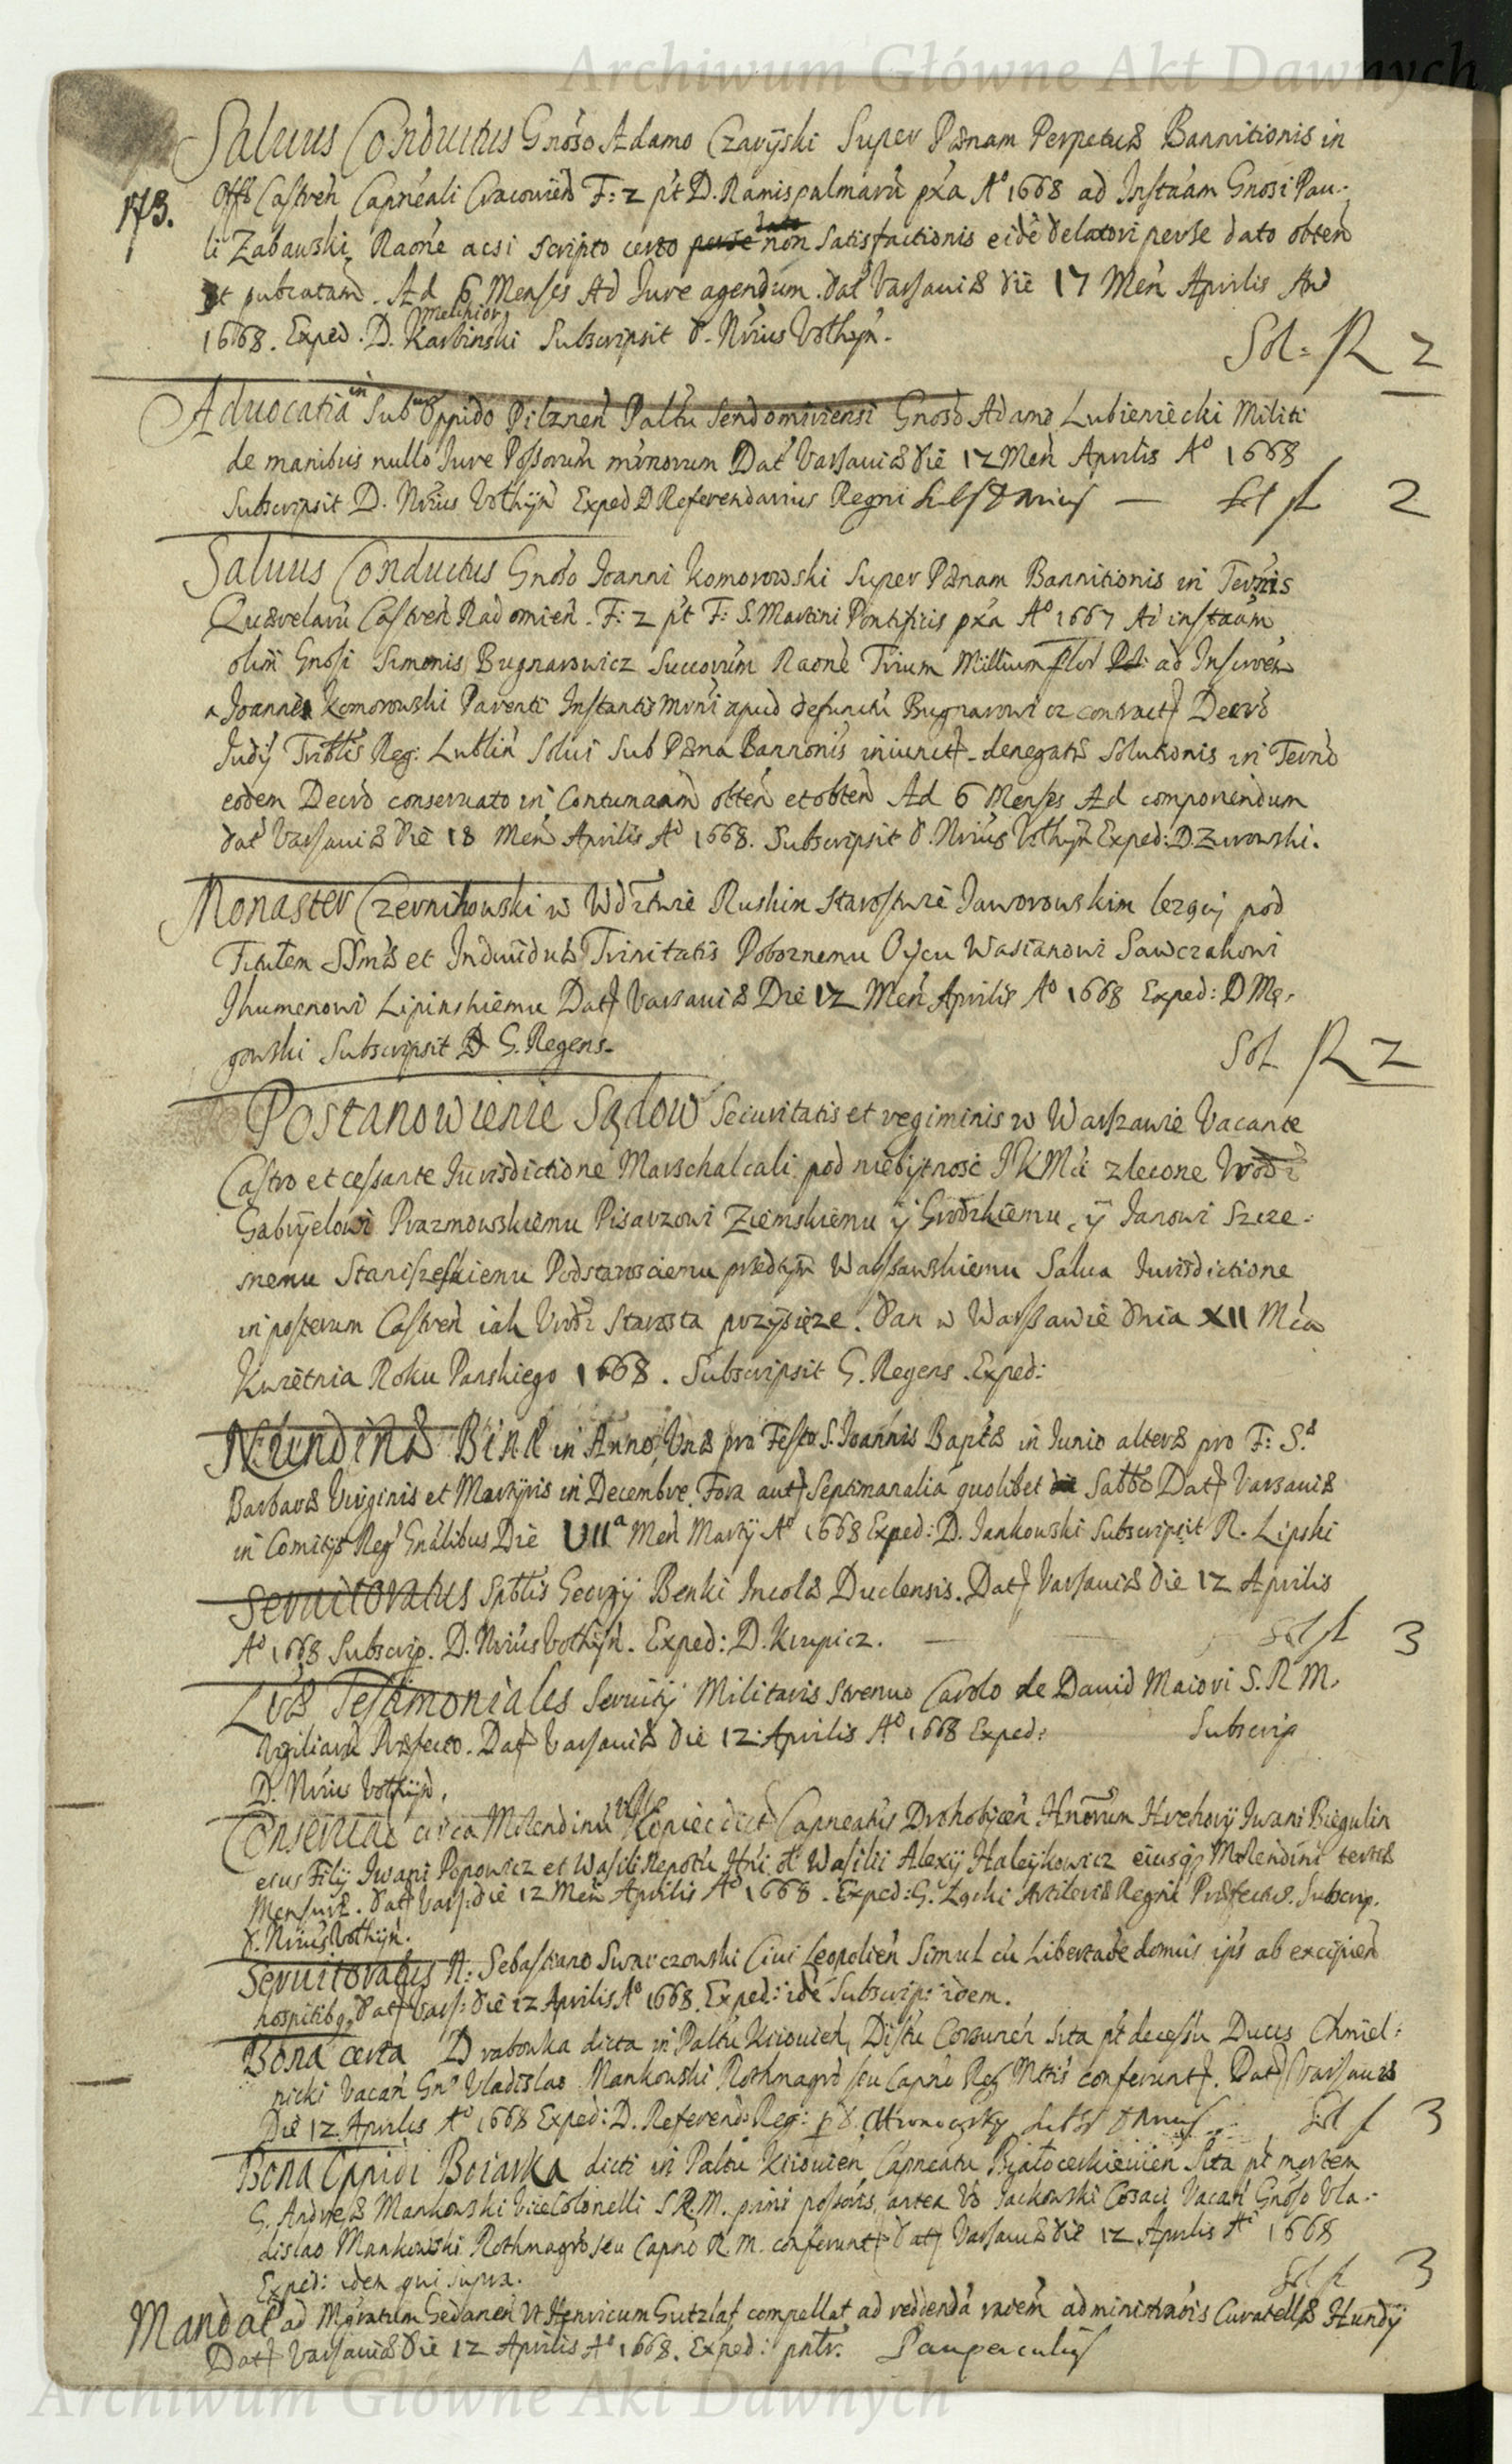 Archiwum Główne Akt Dawnych
Saluus Conductus Gnoso Adamo Czaryski Super Pænam Perpetuæ Bannitionis in
173. Offo Castren Capneali Cracouien F: 2 pt D. Ramispalmaru pxa Aº 1668 ad Instaam Gnosi Pau-
li Zabawski Raone acsi scripto certo non Satisfactionis eide delatori perse dato obten
et publicatam. Ad 6 Menses Ad Iure agendum. Dat Varsauiæ die 17 Men Aprilis
1668. Exped. D. Melchior Karbinski Subscripsit D. Nrius Vothyn.
Sol: R 2
Aduocatia in Suburb Oppido Pilznen Paltu Sendomiriensi Gnoso Adamo Lubieniecki Militi
de manibus nullo Iure Possorum minorum Dat Varsauiæ Die 12 Men Aprilis Aº 1668
Subscripsit D. Nrius Vothyn Exped D Referendarius Regni — 2
Saluus Conductus Gnoso Ioanni Komorowski Super Pænam Bannitionis in Termis
Quærelaru Castren Radomien. F: 2 pt F: S. Martini Pontificis pxa Aº 1667 Ad instaam
olim Gnosi Simonis Bugnarowicz Succorum Raone Trium Millium flor ad Inseruen
a Ioanne Komorowski Parenti apud defuncti Bugnarowicz contract Decro
Iudij Triblis Reg: Lublin Solui Sub Pæna Bannonis iniunct. denegatæ Solutionis in Termo
eodem Decro conseruato in Contumaam obten et obten Ad 6 Menses Ad componendum
dat Varsauiæ Die 18 Men Aprilis Aº 1668. Subscripsit D. Nrius Vothyn Exped: D. Zurowski.
Monaster Czernihowski w Wdztwie Ruskim Starostwie Jaworowskim lezący pod
Titułem SSmæ et Indiuiduæ Trinitatis Poboznemu Oycu Wasianowi Sawczakowi
Ihumenowi Lipinskiemu Dat Varsauiæ Die 12 Men Aprilis Aº 1668 Exped: D Mę-
gowski Subscripsit D G. Regens.
Sol R 2
Postanowienie Sądow Securitatis et regiminis w Warszawie Vacante
Castro et cessante Iurisdictione Marschalcali pod niebytnosc JKMci zlecone Vrodz
Gabryelowi Prazmowskiemu Pisarzowi Ziemskiemu y Grodzkiemu, y Janowi Szcze-
snemu Staniszewskiemu Podstarosciemu przedtym Warsawskiemu Salua Iurisdictione
in posterum Castren iak Vrodz Starosta przysięze. Dan w Warssawie Dnia XII Mca
Kwietnia Roku Panskiego 1668. Subscripsit G. Regens. Exped:
Nundinæ Binæ in Anno, Vnæ pro Festo S. Ioannis Baptæ in Iunio alteræ pro F: S.æ
Barbaræ Virginis et Martyris in Decembre. Fora aut Septimanalia quolibet Sabbo Dat Varsauiæ
in Comitijs Reg Gnalibus Die VIIª Men Martij Aº 1668 Exped: D. Jankowski Subscripsit R. Lipski
Seruitoratus Spblis Georgij Benki Incolæ Duclensis. Dat Varsauiæ Die 12 Aprilis
Aº 1668 Subscrip. D. Nrius Vothyn. Exped: D. Krupicz. — 3
Lræ Testimoniales Seruitij Militaris Strenuo Carolo de Dauid Maiori S. R M.
Vigiliaru Præfecto. Dat Varsauiæ Die 12 Aprilis Aº 1668 Exped: Subscrip
D. Nrius Vothyn.
Conseruae circa Molendinu Kopiec dict Capneatus Drohobycen Hnorum Hrehorij Iwani Biegulin
eius Filij Iwani Popowicz et Wasili Nepotu Hni Wasilii Alexij Haleykowicz eiusq Molendini tertiæ
Mensuræ. Dat Vars: die 12 Men Aprilis Aº 1668. Exped: G. Lącki Artileriæ Regni Præfectus. Subscrip.
D. Nrius Vothyn.
Seruitoratus N: Sebastiano Swarczowski Ciui Leopolien Simul cu Libertate domus ipius ab excipien
hospitibq Dat Vars: Die 12 Aprilis Aº 1668. Exped: ide Subscrip: idem.
Bona certa Drabowka dicta in Paltu Kiiouien, Distu Corsunen Sita pt decessu Ducis Chmiel-
nicki Vacan Gn° Vladislao Mankowski Rothmagro seu Capno Reg Mttis conferunt. Dat Varsauiæ
Die 12 Aprilis Aº 1668 Exped: D. Referend: Reg: 3
Bona Oppidi Boiarka dicti in Paltu Kiiouien Capneatu Białocerkieuien Sita pt mortem
G. Andreæ Mankowski ViceColonelli S R. M. primi possoris, antea Vo Jackowski Cosaci Vacan Gnoso Vla-
dislao Mankowski Rothmagro seu Capno R. M. conferunt Dat Varsauiæ Die 12 Aprilis Aº 1668
Exped: idem qui supra. 3
Mandat ad Mgratum Gedanen Vt Henricum Gutzlaf compellat ad reddenda raoem administraois Curatellæ Hundij
Dat Varsauiæ Die 12 Aprilis Aº 1668. Exped: pntr.
Archiwum Główne Akt Dawnych